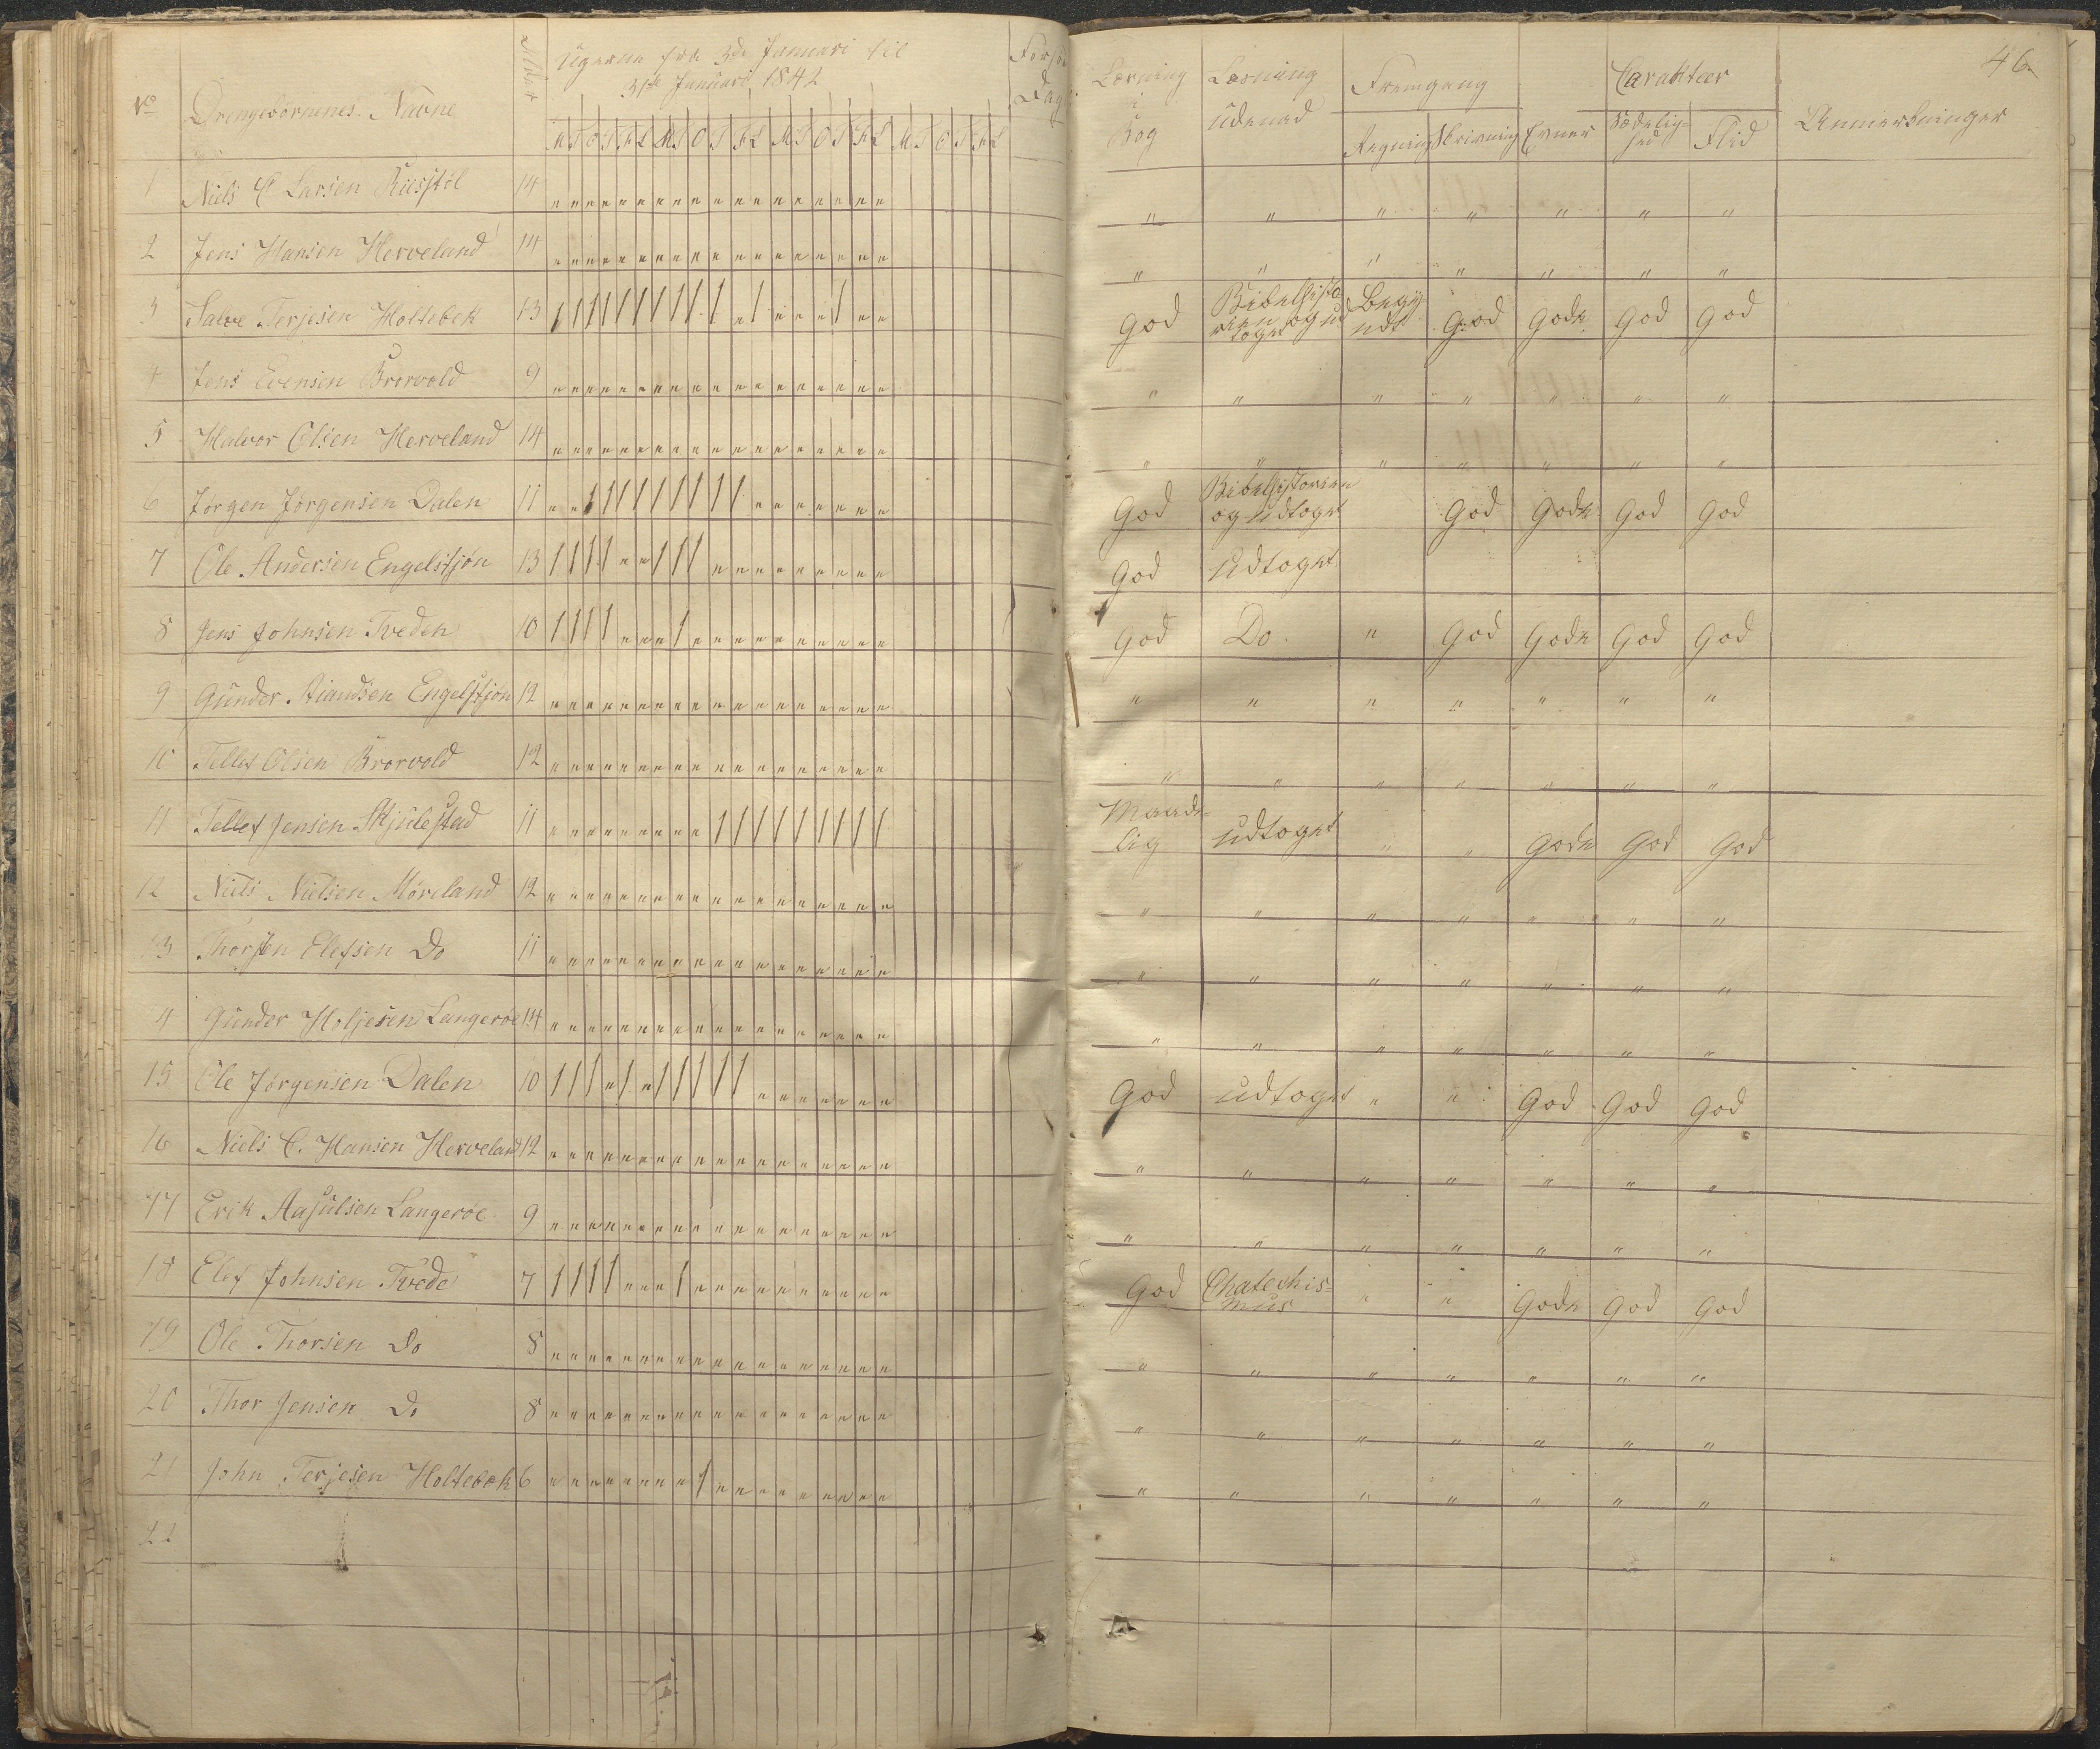 46
No Drengebørnenes Navne Alder Ugerne fra 3de Januari til
31te Januari 1842
M T O T F L M T O T F L M T O T F L M T O T F L
Dag
Læsning i Bog
Læsning udenad
Fremgang
Regning Skrivning Evner
Carakteer
Sædelighed Flid
Anmerkninger
1 Niels C Larsen Riisstøl 14 " " " " " " "
2 Jens Hansen Herveland 14 " " " " " " "
3 Salve Terjesen Holtebek 13 God Bibelhistorien og udtoget Begyndt God Gode God God
4 Jens Evensen Brorvold 9 " " " " " " "
5 Halvor Olsen Herveland 14 " " " " " " "
6 Jørgen Jørgensen Dalen 11 God Bibelhistorien og udtoget God Gode God God
7 Ole Andersen Engelstjøn 13 God Udtoget
8 Jens Johnsen Tveden 10 God Do " God Gode God God
9 Gunder Engelstjøn 12 " " " " " " "
10 Tellef Olsen Brorvold 12 " " " " " " "
11 Tellef Jensen Skjulestad 11 Maadelig Udtoget " " Gode God God
12 Niels Nielsen Møreland 12 " " " " " " "
13 Thorsten Elefsen Do 11 " " " " " " "
14 Gunder Holjesen Langeroe 14 " " " " " " "
15 Ole Jørgensen Dalen 10 God Udtoget " " God God God
16 Niels C. Hansen Herveland 12 " " " " " " "
17 Erik Aasulsen Langerøe 9 " " " " " " "
18 Elef Johnsen Tvede 7 God Chatechismus " " Gode God God
19 Ole Thorsen Do 8 " " " " " " "
20 Thor Jensen Do 8 " " " " " " "
21 John Terjesen Holtebek 6 " " " " " " "
22